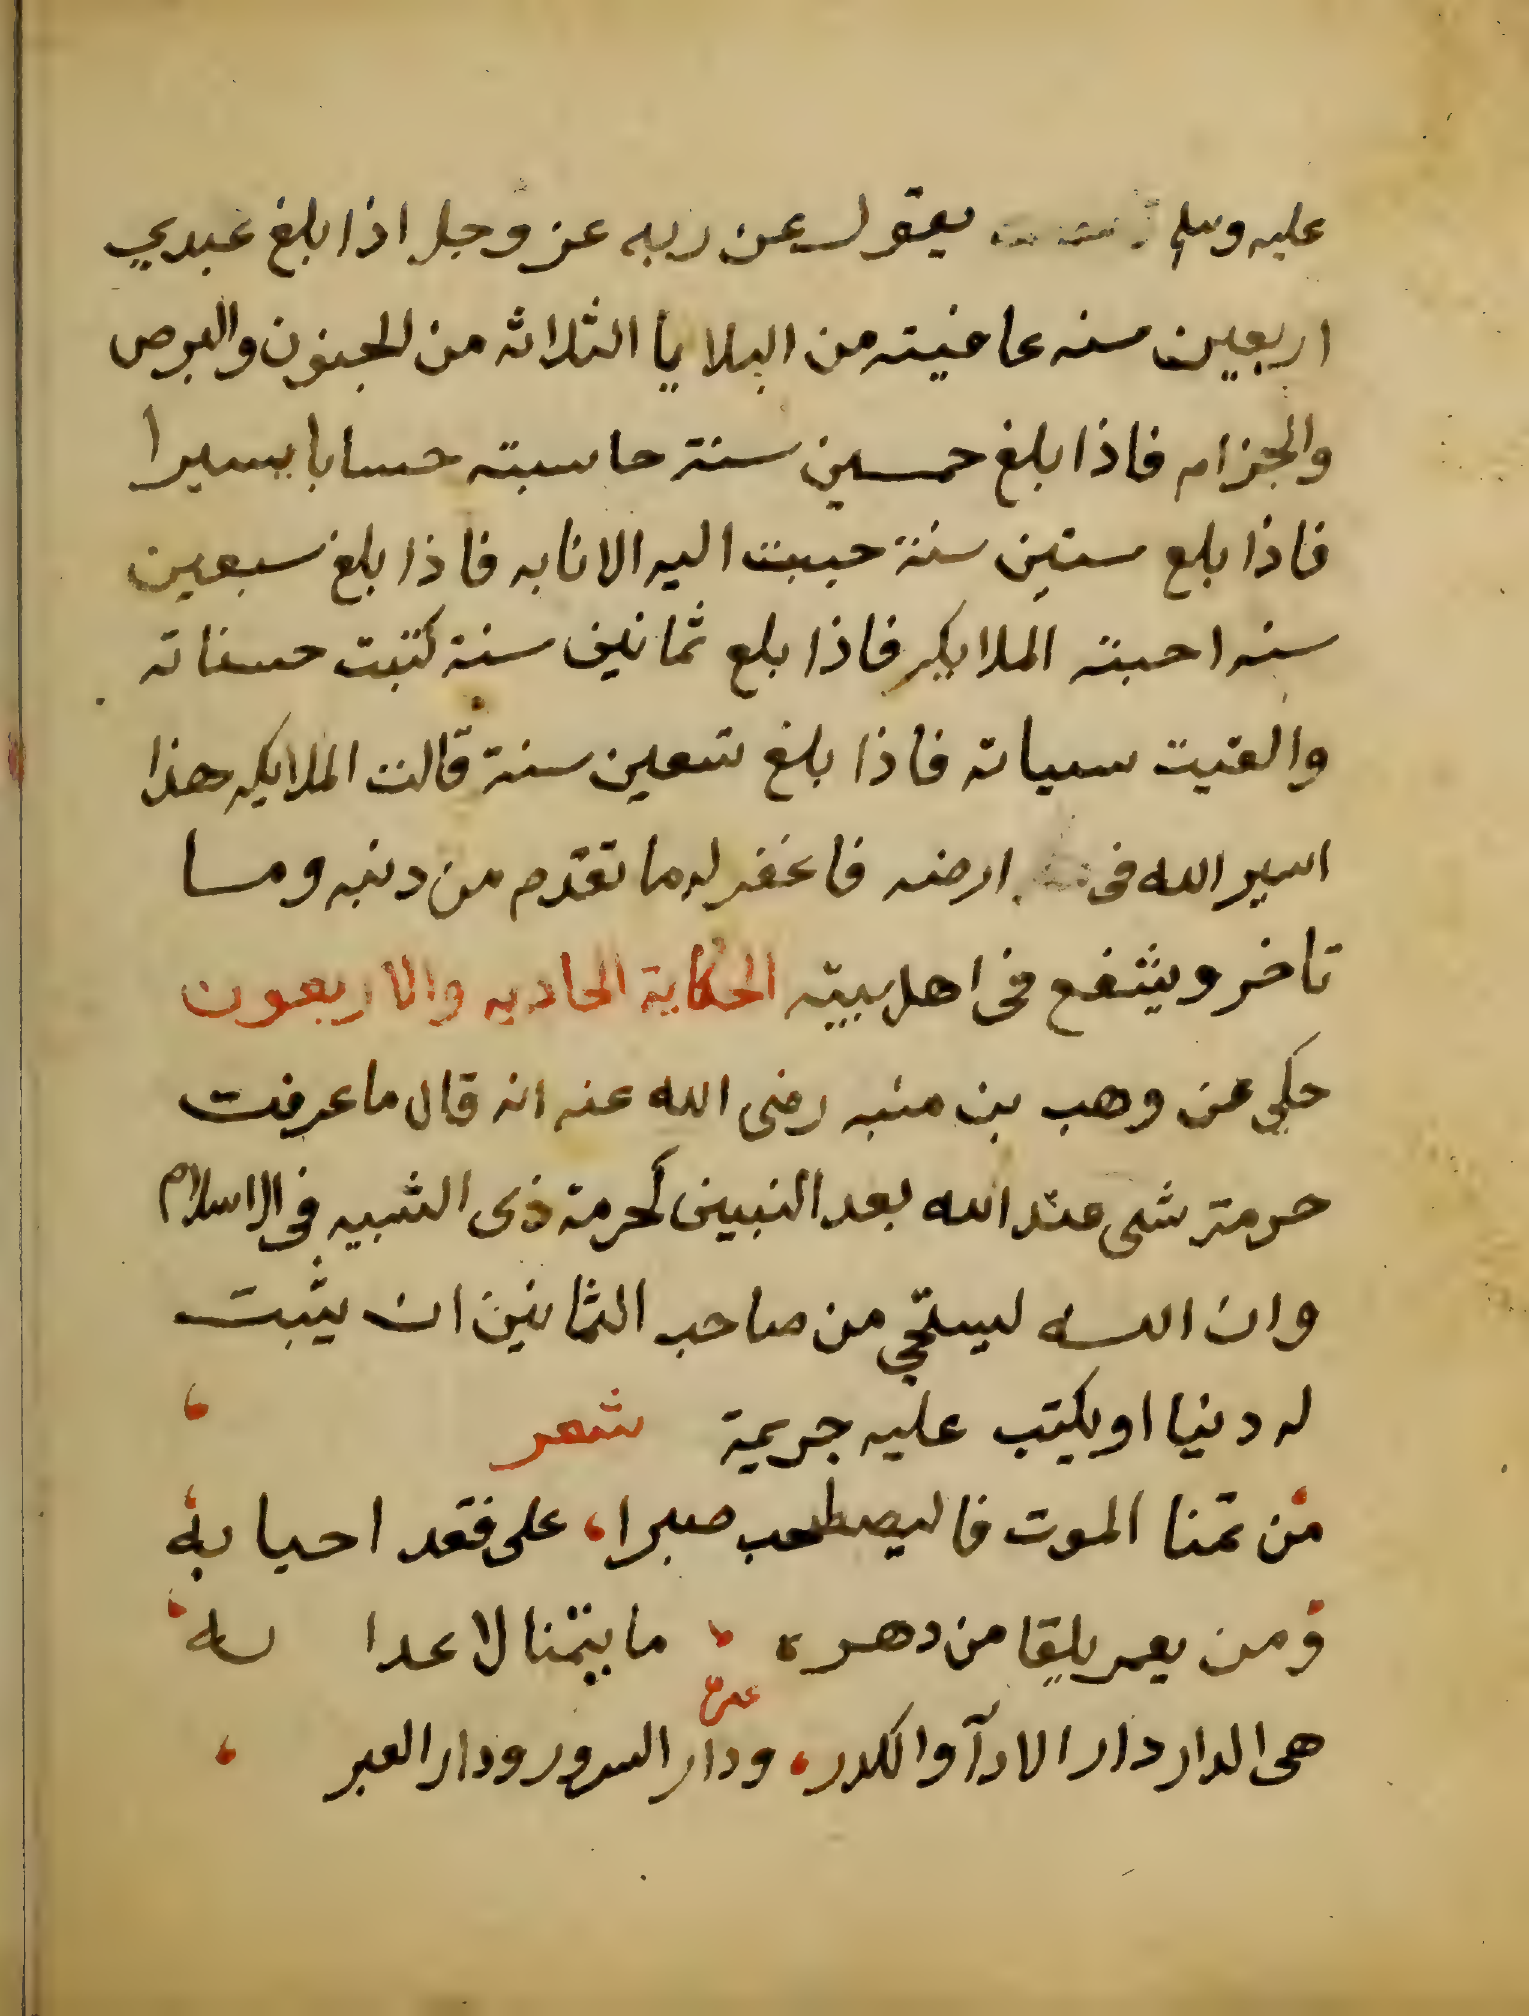 عليه وسلم يقول عن ربه عز وجل اذا بلغ عبدي
اربعين سنه عافيته من البلايا الثلاثه من الجنون والبرص
والجزام فاذا بلغ خمسين سنة حاسبته حسابا يسيرا
فاذا بلع ستين سنة حببت اليه الانابه فاذا بلغ سبعين
سنه احبته الملايكه فاذا بلع ثمانين سنة كتبت حسناته
والقيت سياته فاذا بلغ تسعين سنة قالت الملايكه هذا
اسير الله فى ارضه فاغفر له ما تقدم من دنبه وما
تاخر ويشفع فى اهل بيته الحكاية الحاديه والاربعون
حكي عن وهب بن منبه رضى الله عنه انه قال ما عرفت
حرمة شى عند الله بعد النبين كحرمة ذى الشيبه فى الاسلام
وان الله ليستحي من صاحب الثمانين ان يثبت
له دنيا او يكتب عليه جريمة شعر
من تمنا الموت فاليصطحب صبرا، على فقد احبابه
ومن يعمر يلقا من دهره ما يتمنا لاعدا له
غيره
هى الدار دار الادآ والكدر، ودار السرور ودار العبر